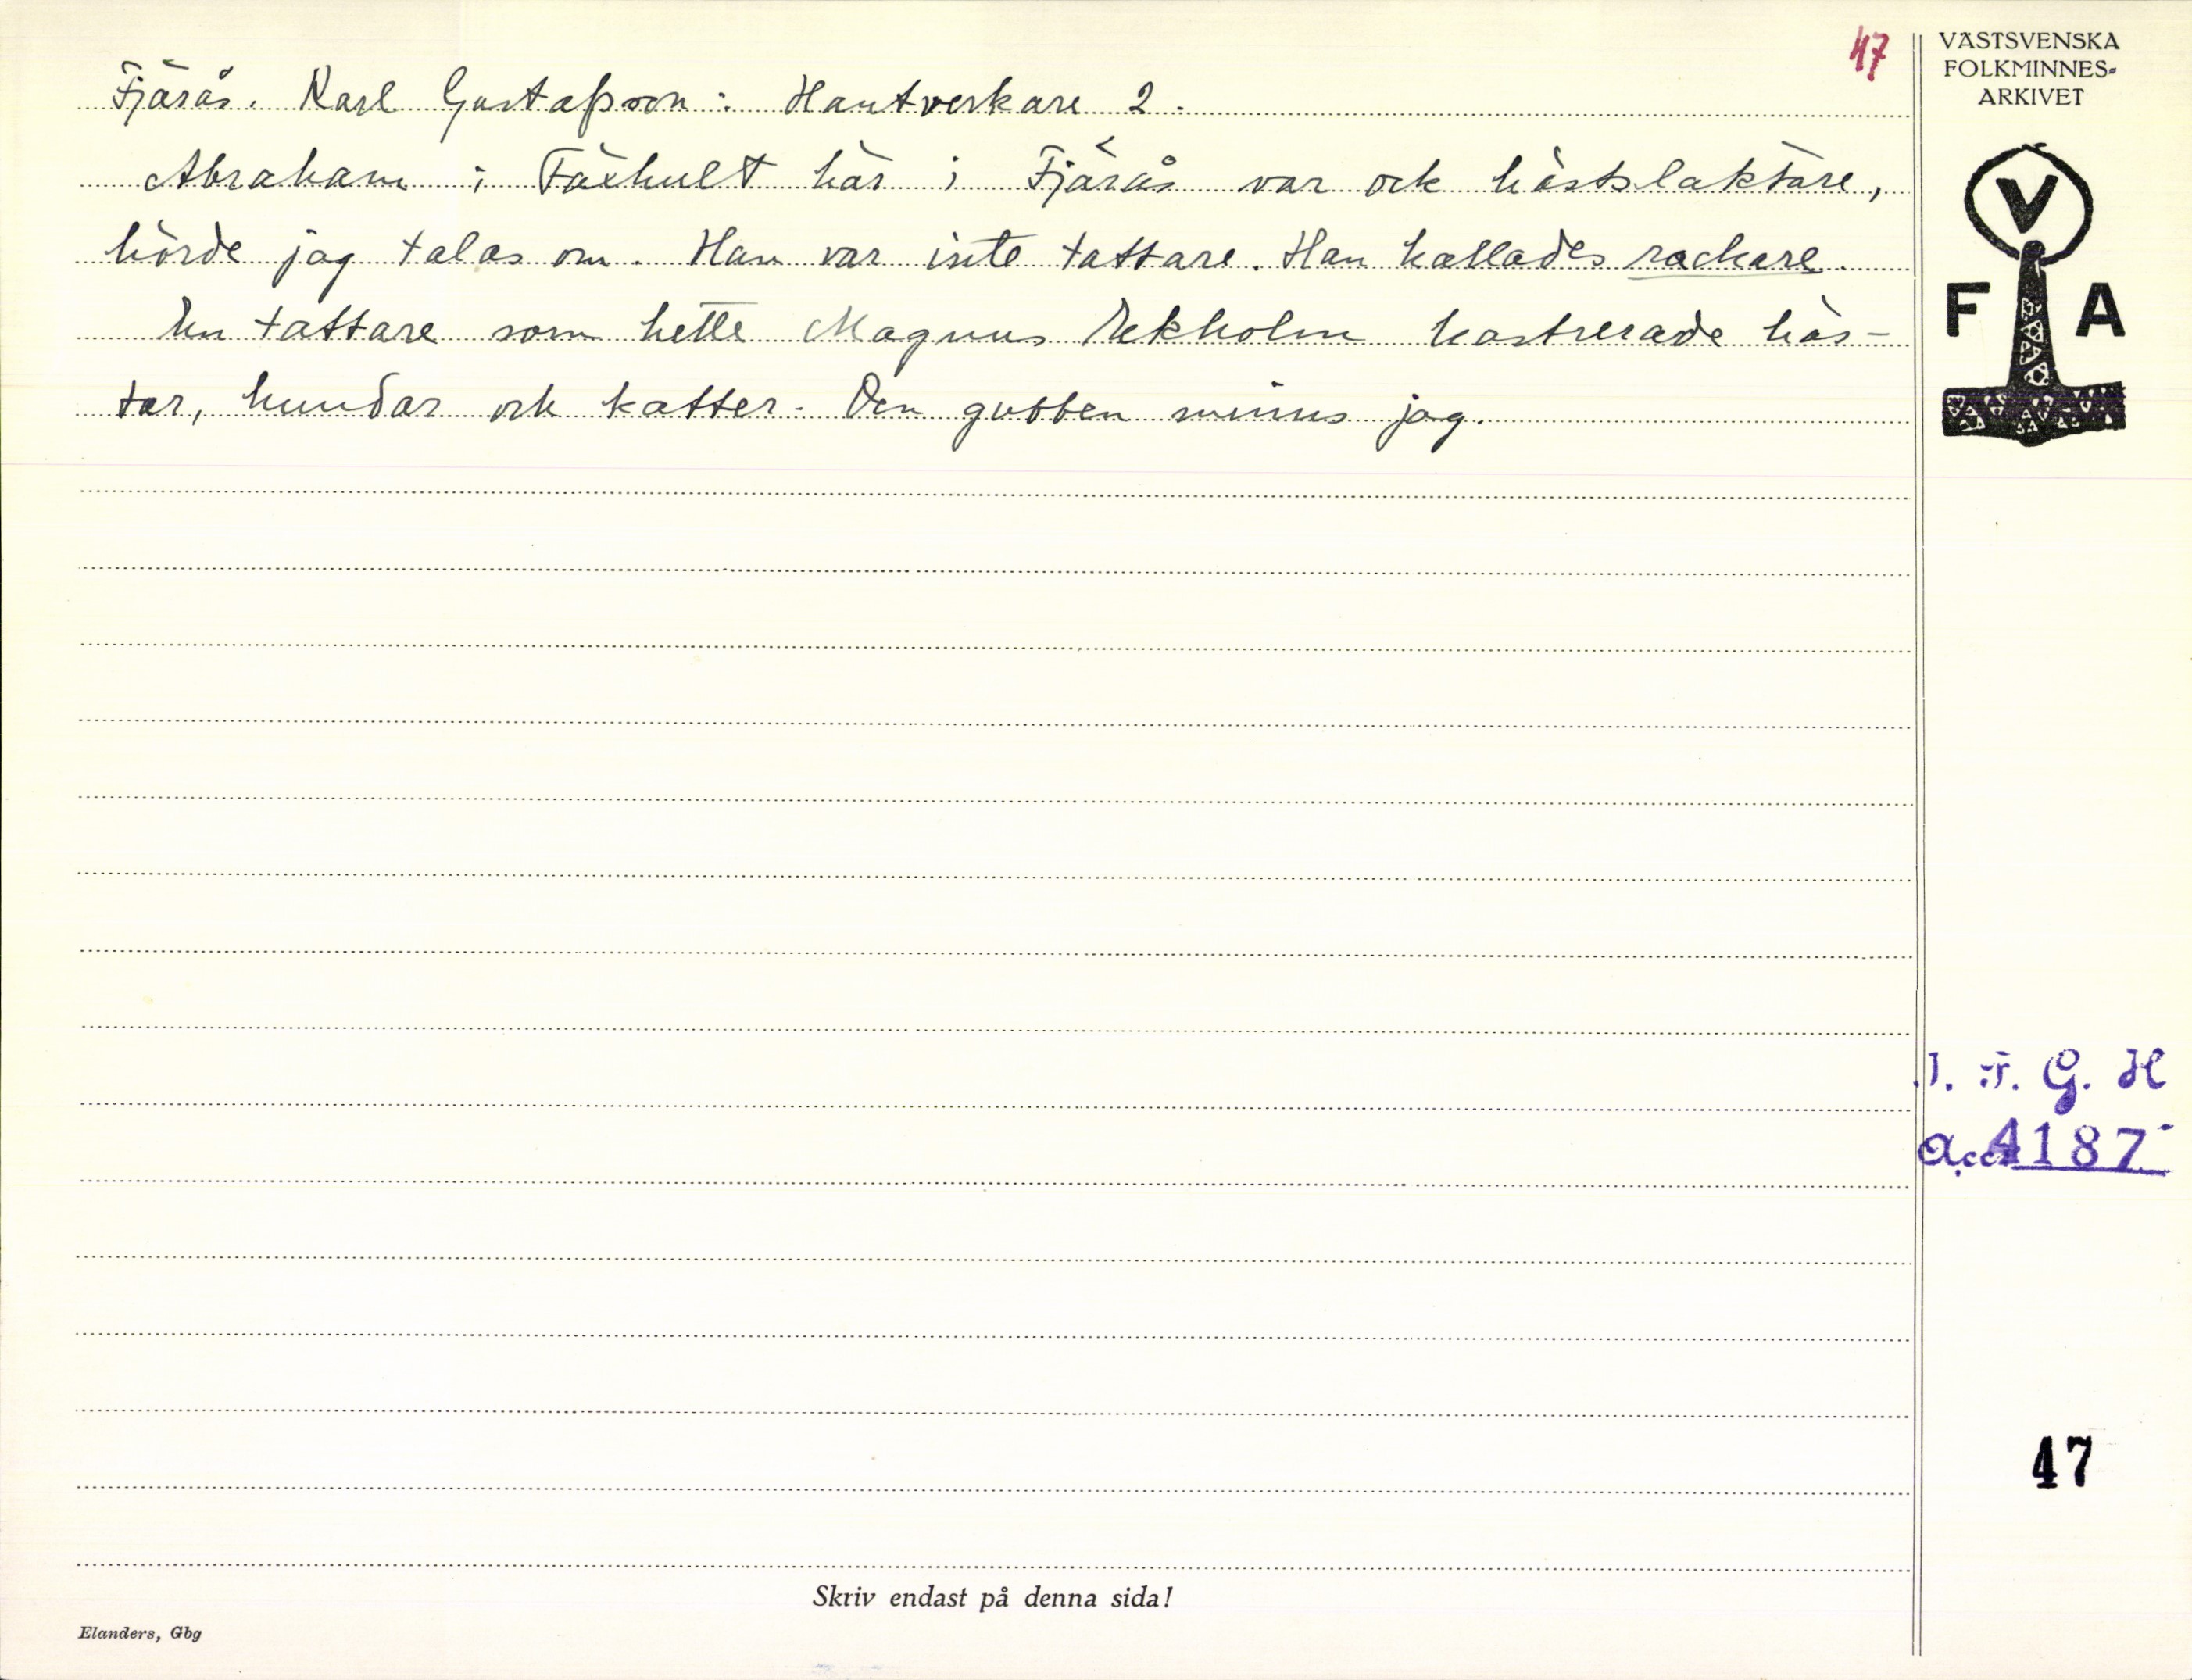 47
VÄSTSVENSKA
FOLKMINNES-
ARKIVET
V
F A
Fjärås. Karl Gustafsson: Hantverkare 2.
Abraham i Fäxhult här i Fjärås var ock hästslaktare,
hörde jag talas om. Han var inte tattare. Han kallades rackare.
En tattare som hette Magnus Ekholm kastrerade häs-
tar, hundar och katter. Den gubben minns jag.
I. F. G. H
Acc 4187
47
Skriv endast på denna sida!
Elanders, Gbg